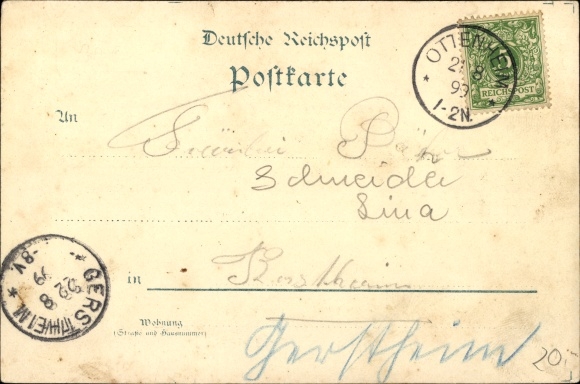 Deutsche Reichspost
Postkarte
OTTENHEIM
21 8
99
1-2N.
REICHSPOST
An
Schneider
Lina
GERSTHEIM
22 8
99
-8V
in
Wohnung
(Straße und Hausnummer)
Gerstheim
20,